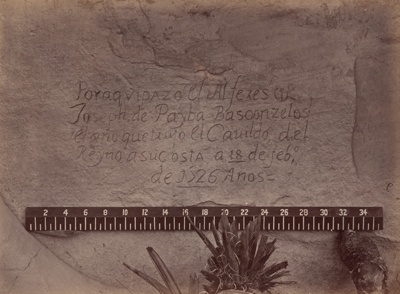 Por aqui pazo el Alferes Dn
Joseph de Payba Basconzelos
el año que trujo el Cavildo del
Reyno a su costa a 18 de febo
de 1726 Años=
2 4 6 8 10 12 14 16 18 20 22 24 26 28 30 32 34